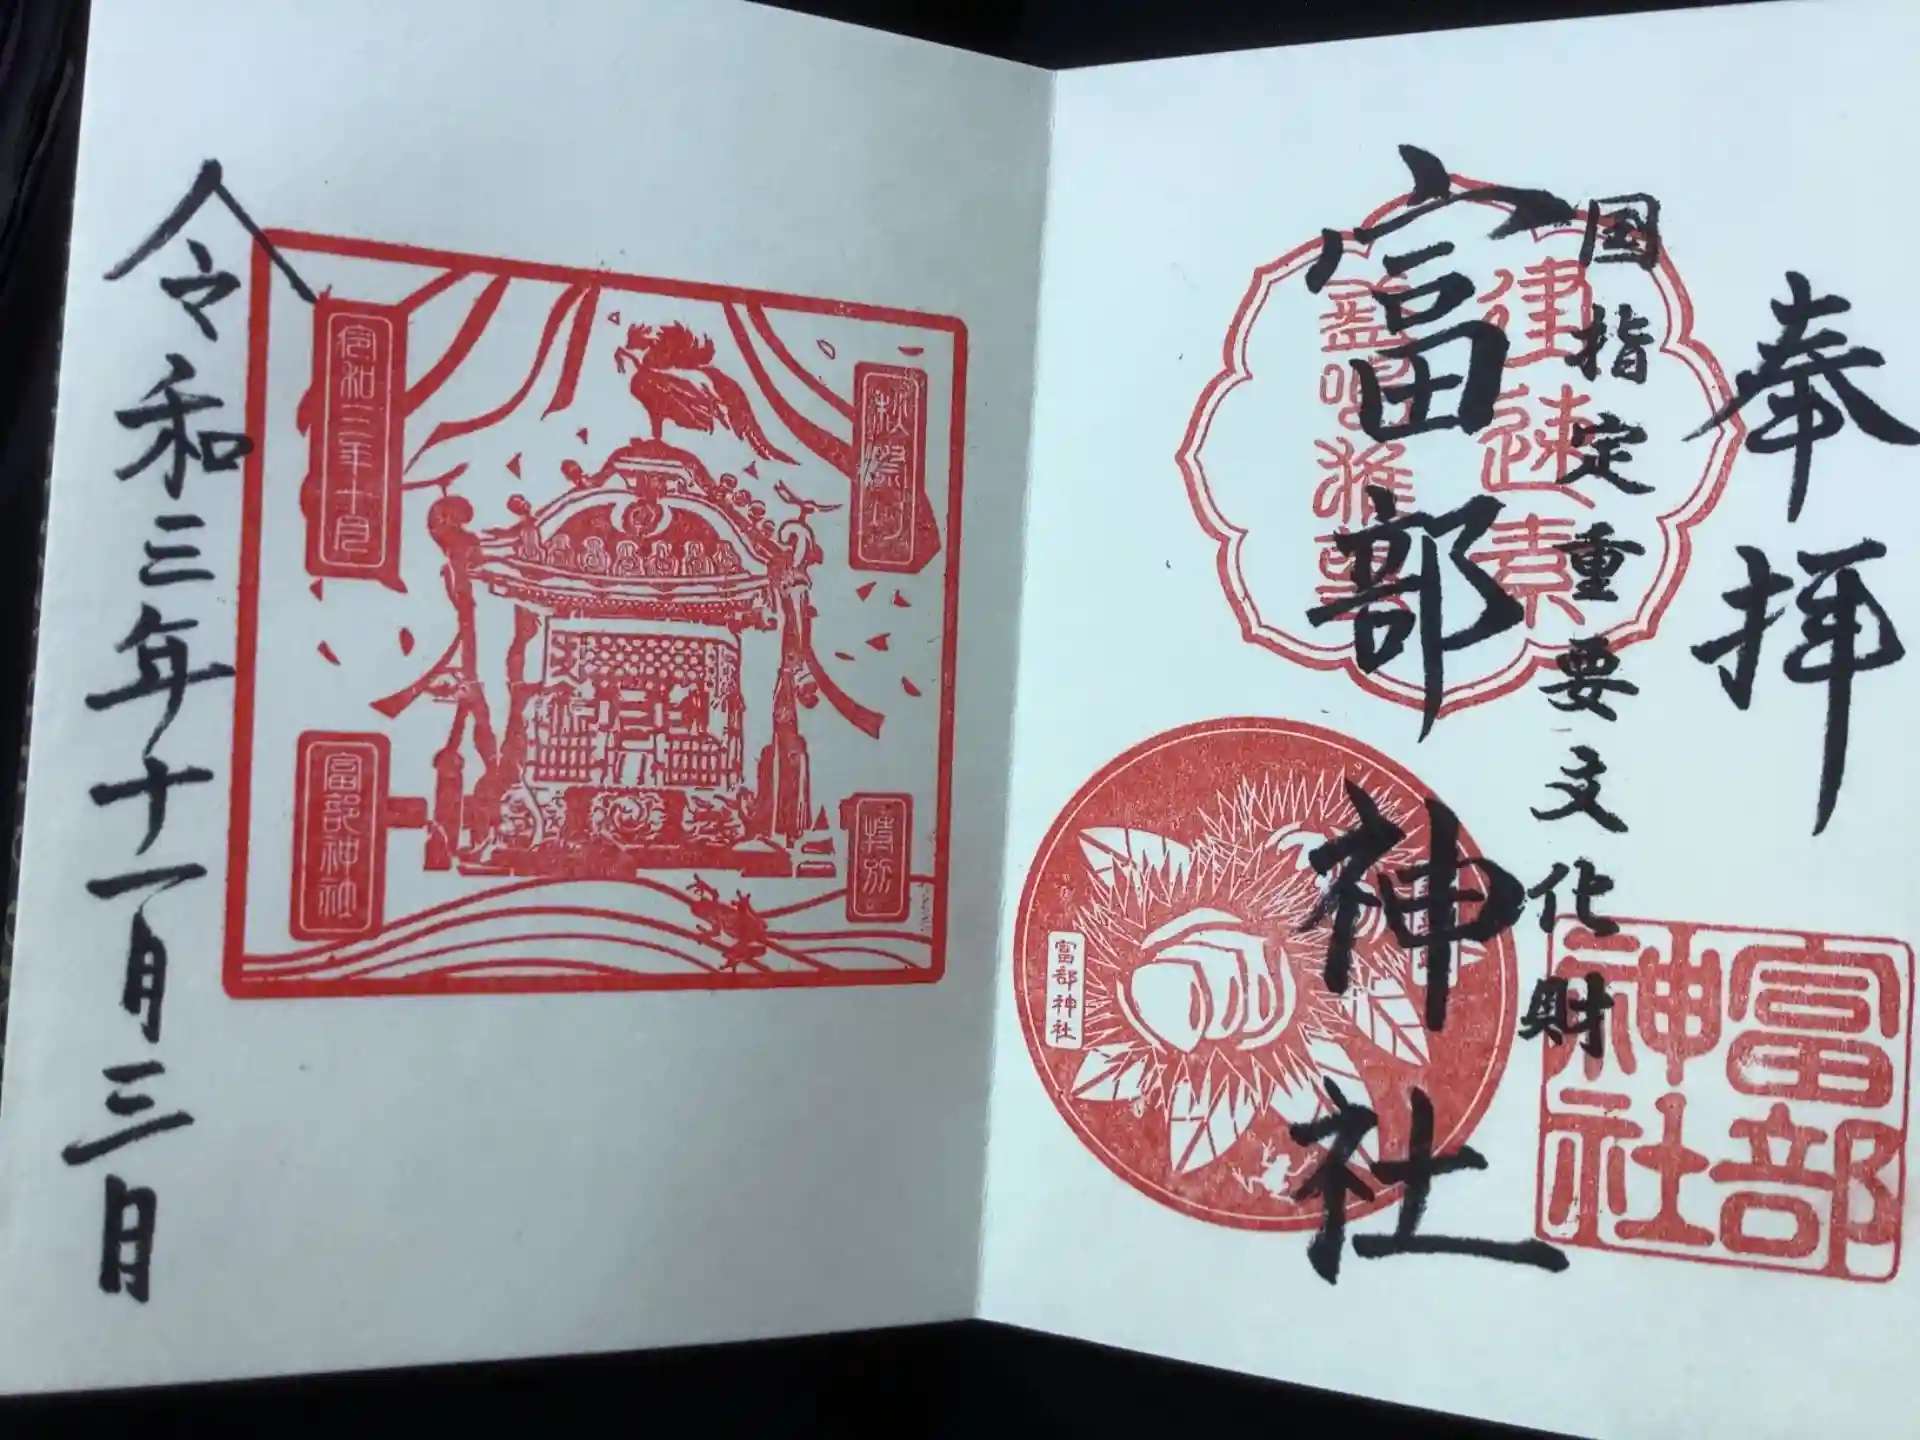 奉拝
国指定重要文化財
富部神社
建速素
盞嗚雅尊
富部神社
富部神社
秋祭
特別
令和三年十月
富部神社
令和三年十一月三日